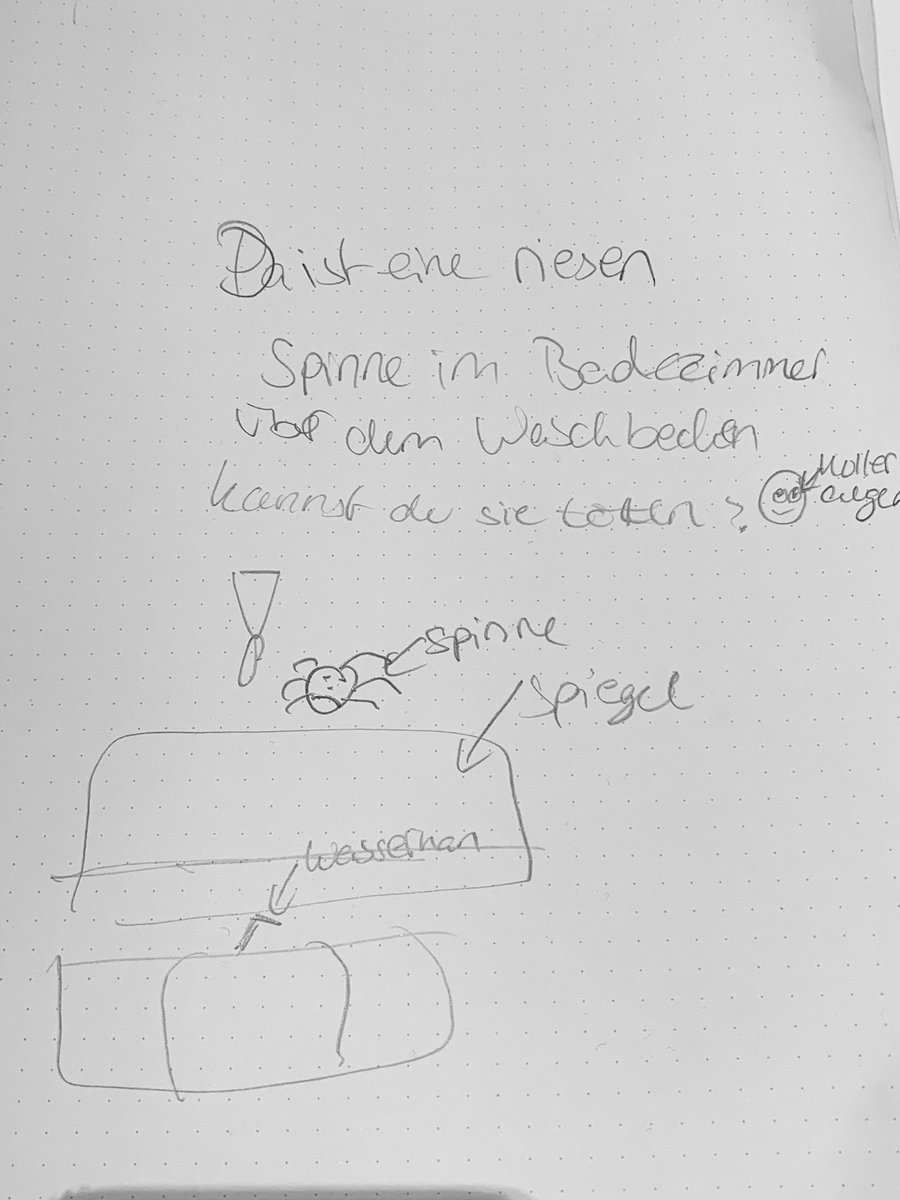 Da ist eine riesen
Spinne im Badezimmer
über dem Waschbecken
kannst du sie töten?
Kuller
augen
Spinne
Spiegel
Wasserhan